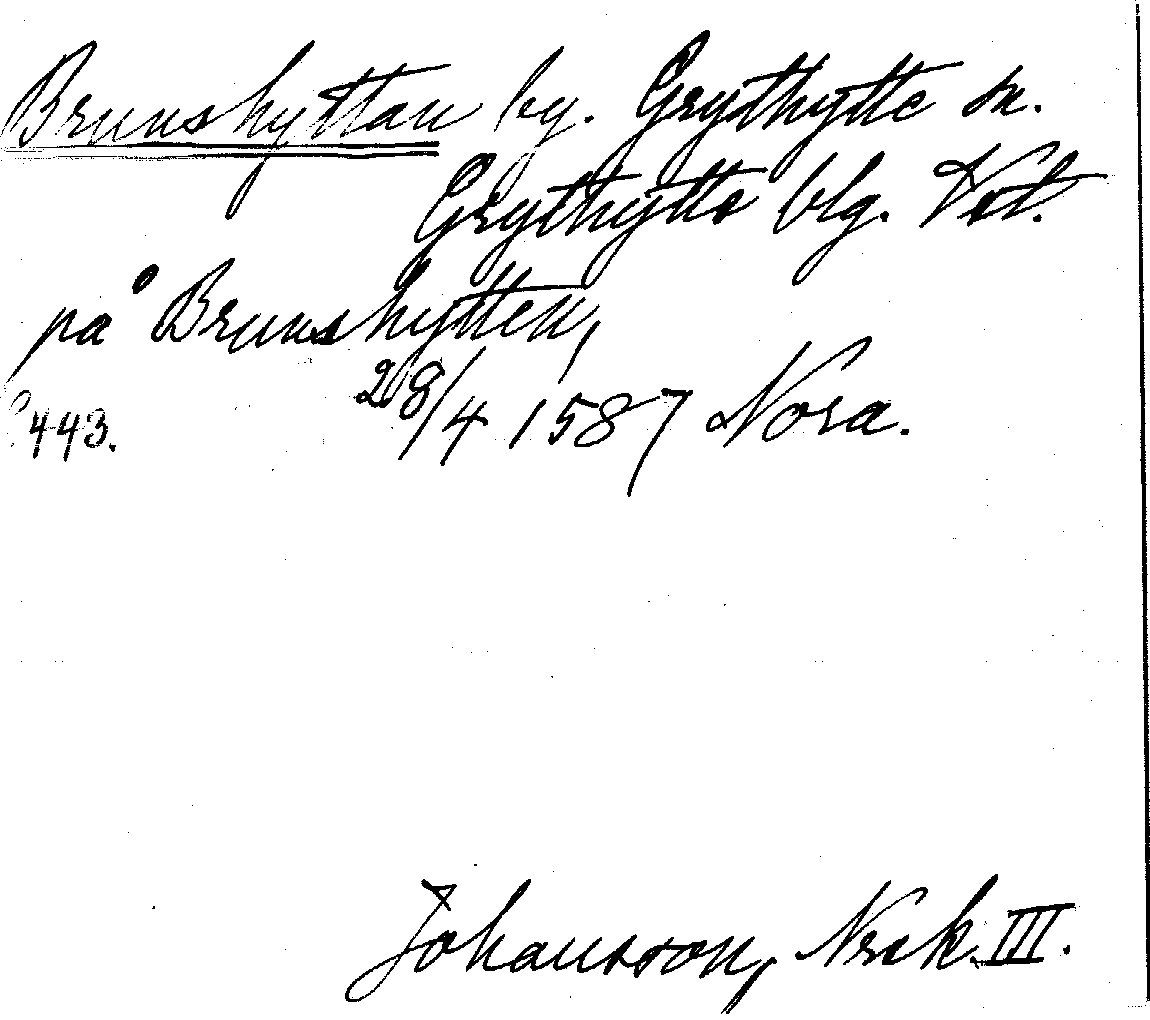 Brunshyttan by. Grythytte sn.
Grythytte blg. Vstl.
på Brunshytten,
28/4 1587 Nora.
443.
Johansson, Nrsk. III.